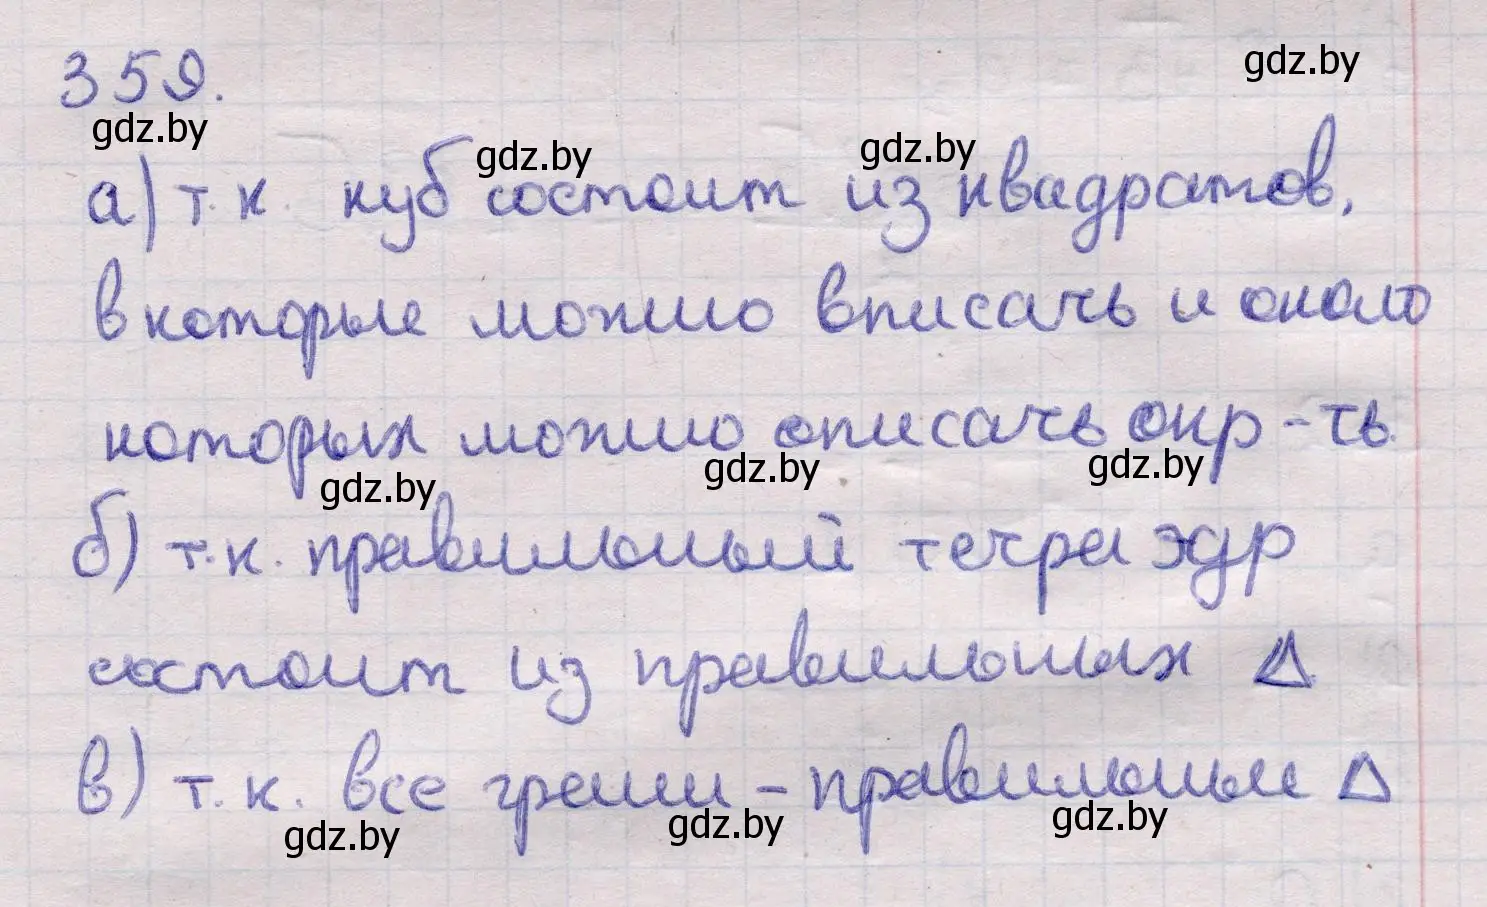 359.
gdz.by
gdz.by
gdz.by
gdz.by
а) т.к. куб состоит из квадратов,
в которые можно вписать и около
которых можно описать окр-ть.
gdz.by
gdz.by
gdz.by
б) т.к. правильный тетраэдр
состоит из правильных Δ
в) т.к. все грани - правильные Δ
gdz.by
gdz.by
gdz.by